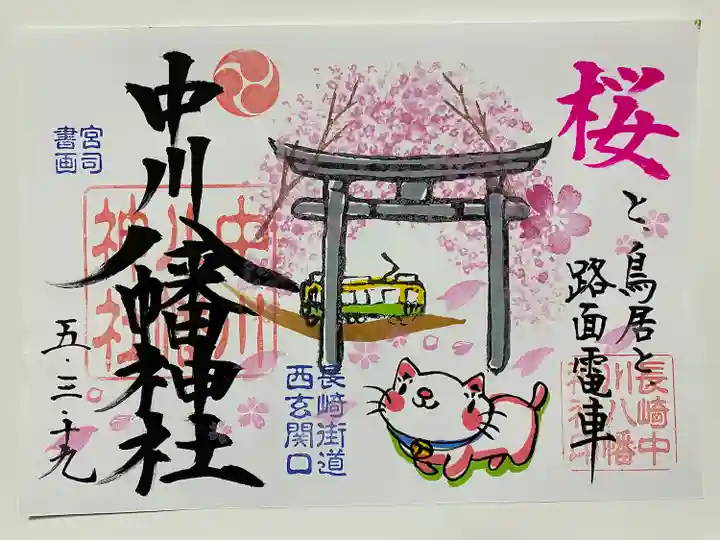 桜
と、鳥居と
路面電車
長崎中
川八幡
神社印
長崎街道
西玄関口
中川八幡神社
中川
八幡
神社
宮司
書画
五・三・十九